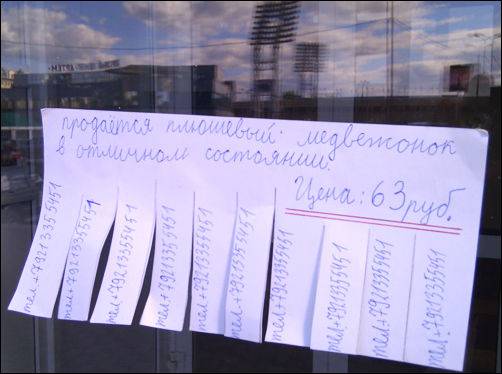 продаётся плюшевый медвежонок
в отличном состоянии.
Цена: 63 руб.
тел.+79213355451
тел.+79213355451
тел.+79213355451
тел.+79213355451
тел.+79213355451
тел.+79213355451
тел.+79213355451
тел.+79213355451
тел.+79213355451
тел.+79213355451